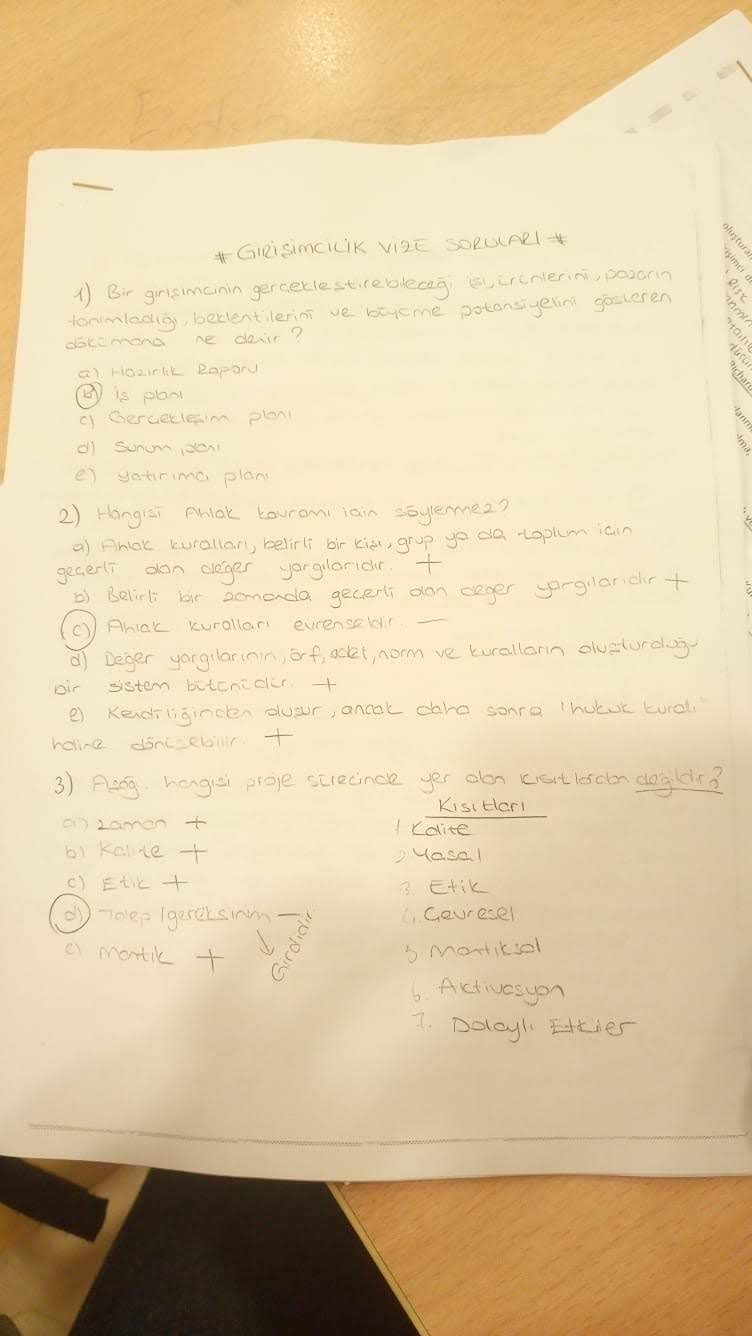 # GİRİŞİMCİLİK VİZE SORULARI #
1) Bir girişimcinin gerçekleştirebileceği işi, ürünlerini, pazarın
tanımladığı, beklentilerini ve büyüme potansiyelini gösteren
dökümana ne denir?
a) Hazırlık Raporu
b) iş planı
c) Gerçekleşim planı
d) Sunum planı
e) yatırımcı planı
2) Hangisi Ahlak kavramı için söylenmez?
a) Ahlak kuralları, belirli bir kişi, grup ya da toplum için
geçerli olan değer yargılarıdır. +
b) Belirli bir zamanda geçerli olan değer yargılarıdır +
c) Ahlak kuralları evrenseldir —
d) Değer yargılarının, örf, adet, norm ve kuralların oluşturduğu
bir sistem bütünüdür. +
e) Kendiliğinden oluşur, ancak daha sonra "hukuk kuralı"
haline dönüşebilir. +
3) Aşağ. hangisi proje sürecinde yer alan kısıtlardan değildir?
a) zaman +
b) Kalite +
c) Etik +
d) Talep / gereksinim —
↓ Girdidir
e) Mantık +
Kısıtları
1 Kalite
2 Yasal
3 Etik
4. Çevresel
5 Mantıksal
6. Aktivasyon
7. Dolaylı Etkiler
oluştura